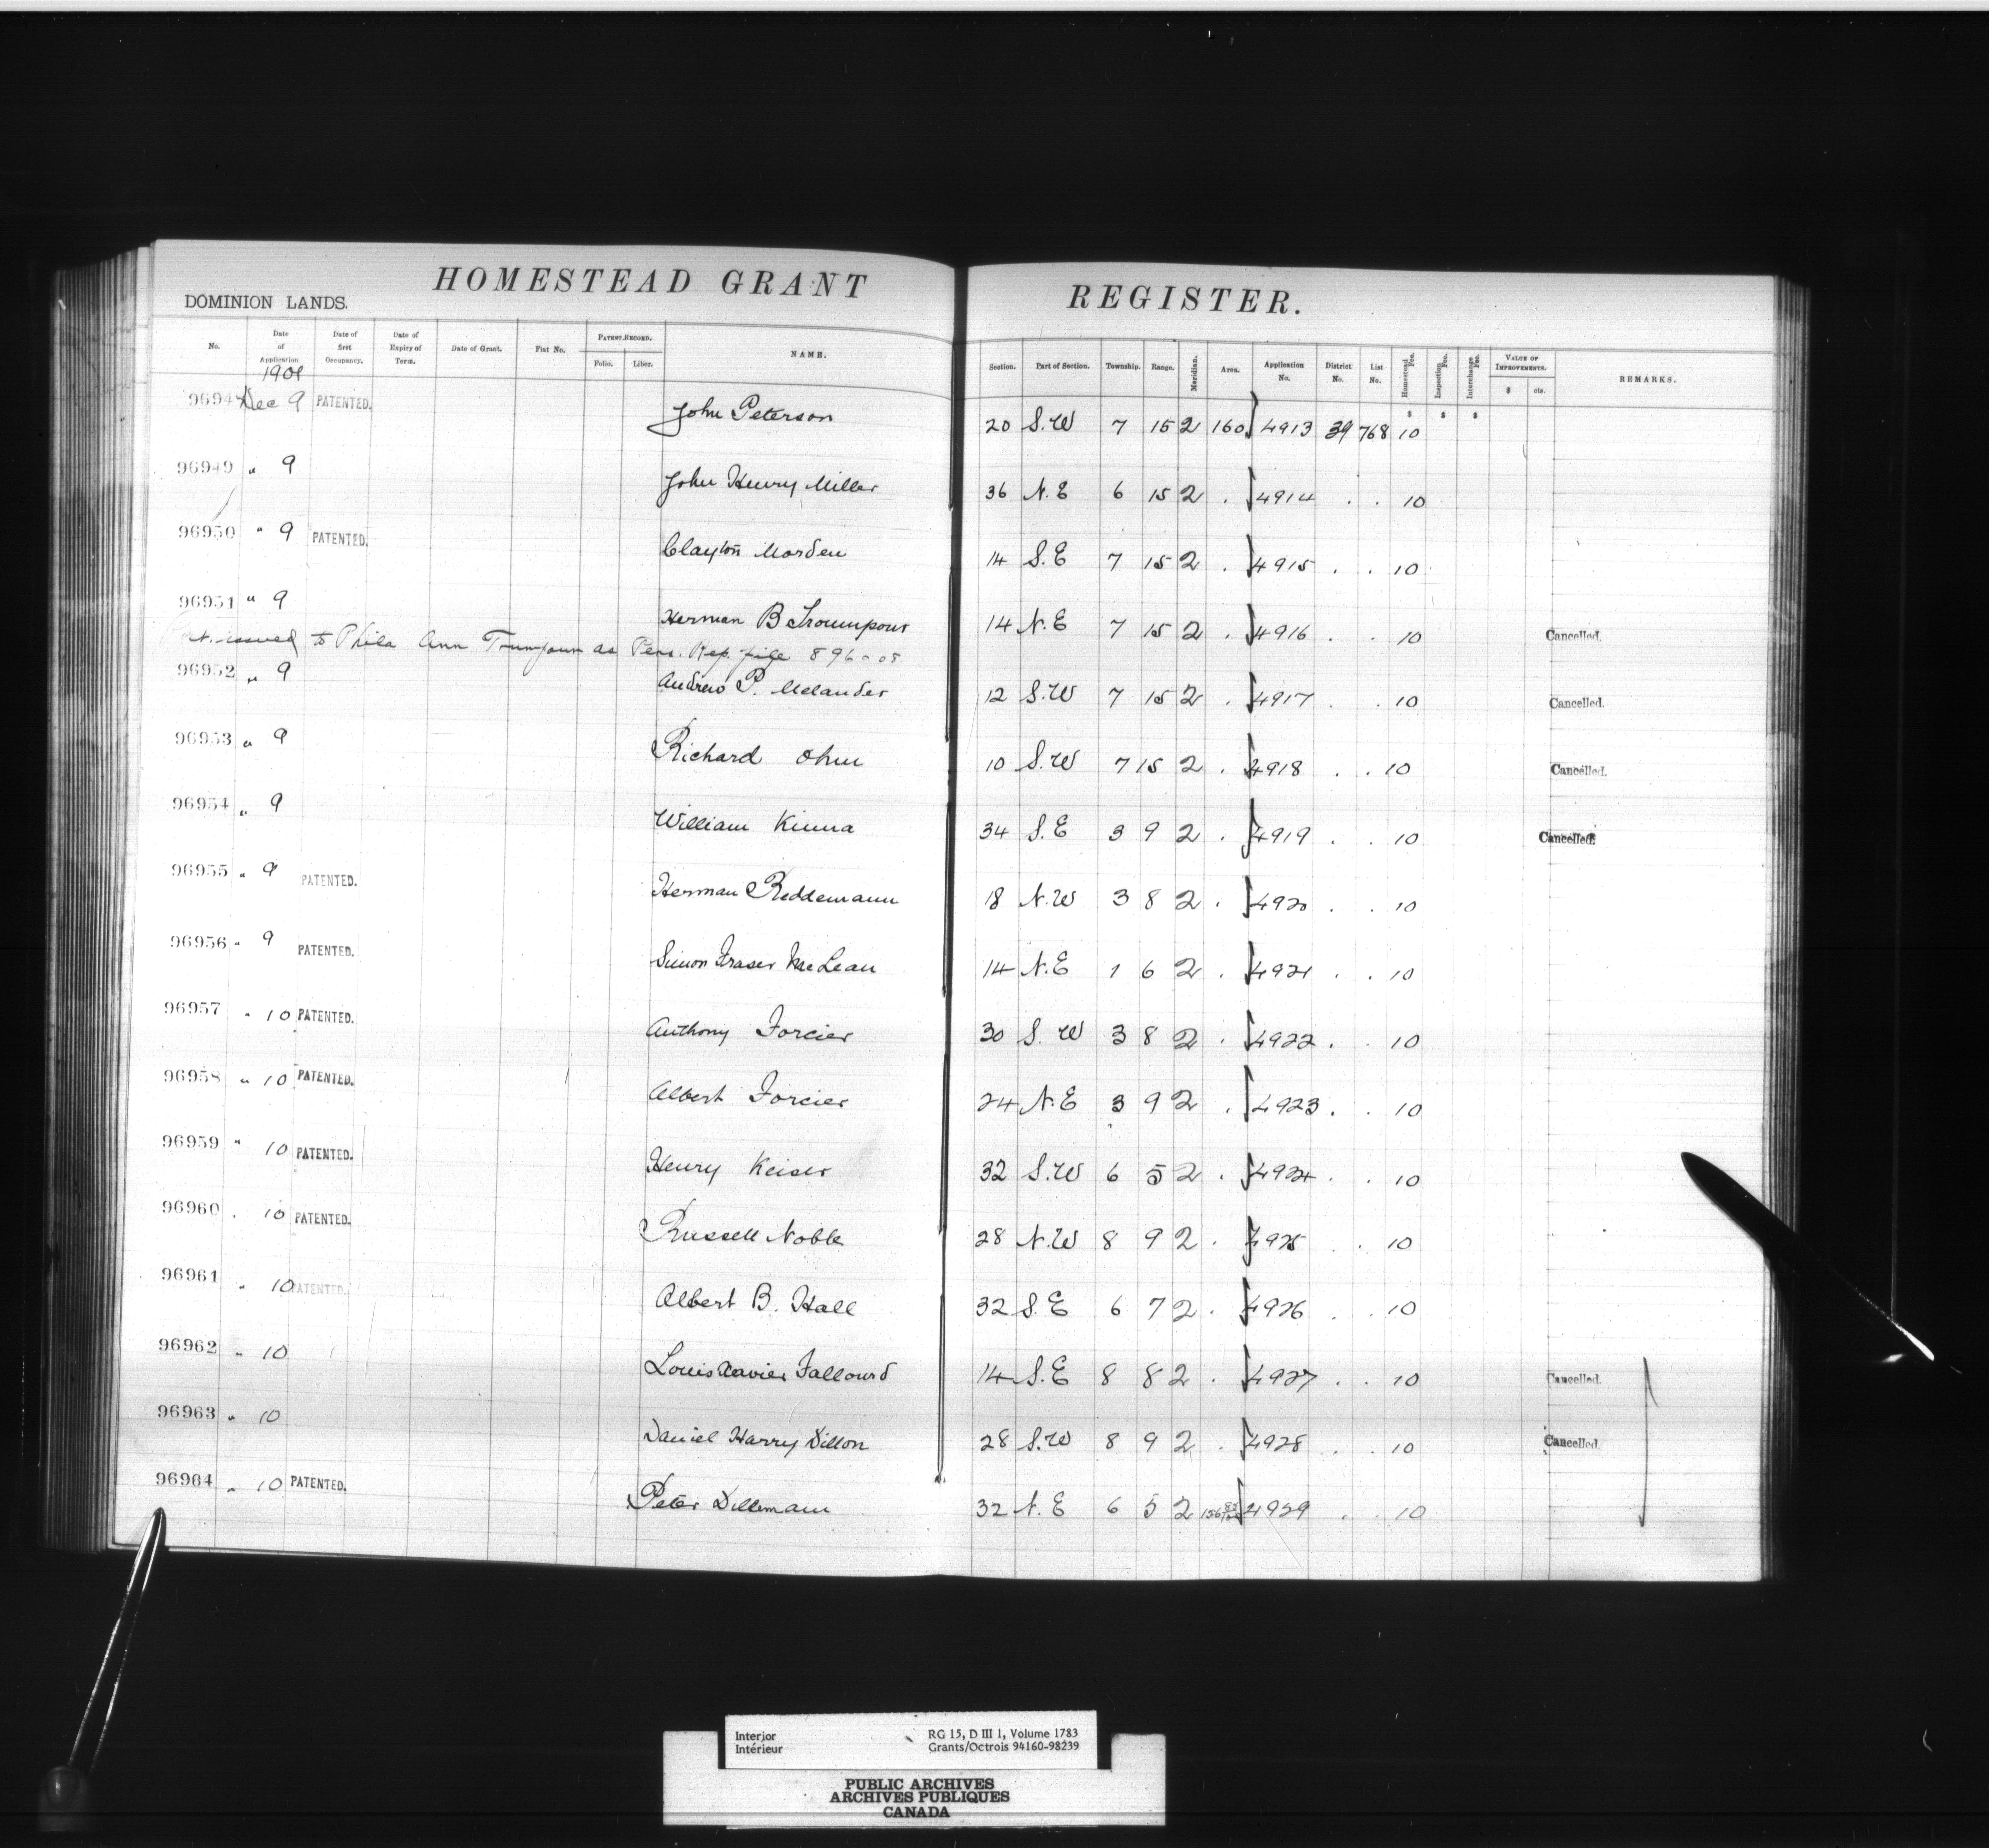 HOMESTEAD GRANT REGISTER.
DOMINION LANDS.
No. Date of Application Date of first Occupancy. Date of Expiry of Term. Date of Grant. Fiat No. PATENT RECORD. Folio. Liber. NAME. Section. Part of Section. Township. Range. Meridian. Area. Application No. District No. List No. Homestead Fee. Inspection Fee. Interchange Fee. VALUE OF IMPROVEMENTS. $ cts. REMARKS.
1901
$ $ $
Dec 9 PATENTED. John Peterson 20 S.W 7 15 2 160 4913 39 768 10
96949 " 9 John Henry Miller 36 N.E 6 15 2 . 4914 . . 10
96950 " 9 PATENTED. Clayton Morden 14 S.E 7 15 2 . 4915 . . 10
96951 " 9 Herman B Troumpour 14 N.E 7 15 2 . 4916 . . 10 Cancelled.
Pat. issued to Phila Ann Trumpour as Pers. Rep. file 896-08
96952 " 9 Andrew P. Melander 12 S.W 7 15 2 . 4917 . . 10 Cancelled.
96953 " 9 Richard Ohm 10 S.W 7 15 2 . 4918 . . 10 Cancelled.
96954 " 9 William Kinna 34 S.E 3 9 2 . 4919 . . 10 Cancelled.
96955 " 9 PATENTED. Herman Reddemann 18 N.W 3 8 2 . 4920 . . 10
96956 " 9 PATENTED. Simon Fraser McLean 14 N.E 1 6 2 . 4921 . . 10
96957 " 10 PATENTED. Anthony Forcier 30 S.W 3 8 2 . 4922 . . 10
96958 " 10 PATENTED. Albert Forcier 24 N.E 3 9 2 . 4923 . . 10
96959 " 10 PATENTED. Henry Keiser 32 S.W 6 5 2 . 4924 . . 10
96960 . 10 PATENTED. Russell Noble 28 N.W 8 9 2 . 4925 . . 10
96961 " 10 PATENTED. Albert B. Hall 32 S.E 6 7 2 . 4926 . . 10
96962 " 10 Louis Xavier Fallourd 14 S.E 8 8 2 . 4927 . . 10 Cancelled.
96963 " 10 Daniel Harry Dillon 28 S.W 8 9 2 . 4928 . . 10 Cancelled.
96964 " 10 PATENTED. Peter Dilleman 32 N.E 6 5 2 4929 . . 10
Interior RG 15, D III 1, Volume 1783
Intérieur Grants/Octrois 94160-98239
PUBLIC ARCHIVES
ARCHIVES PUBLIQUES
CANADA